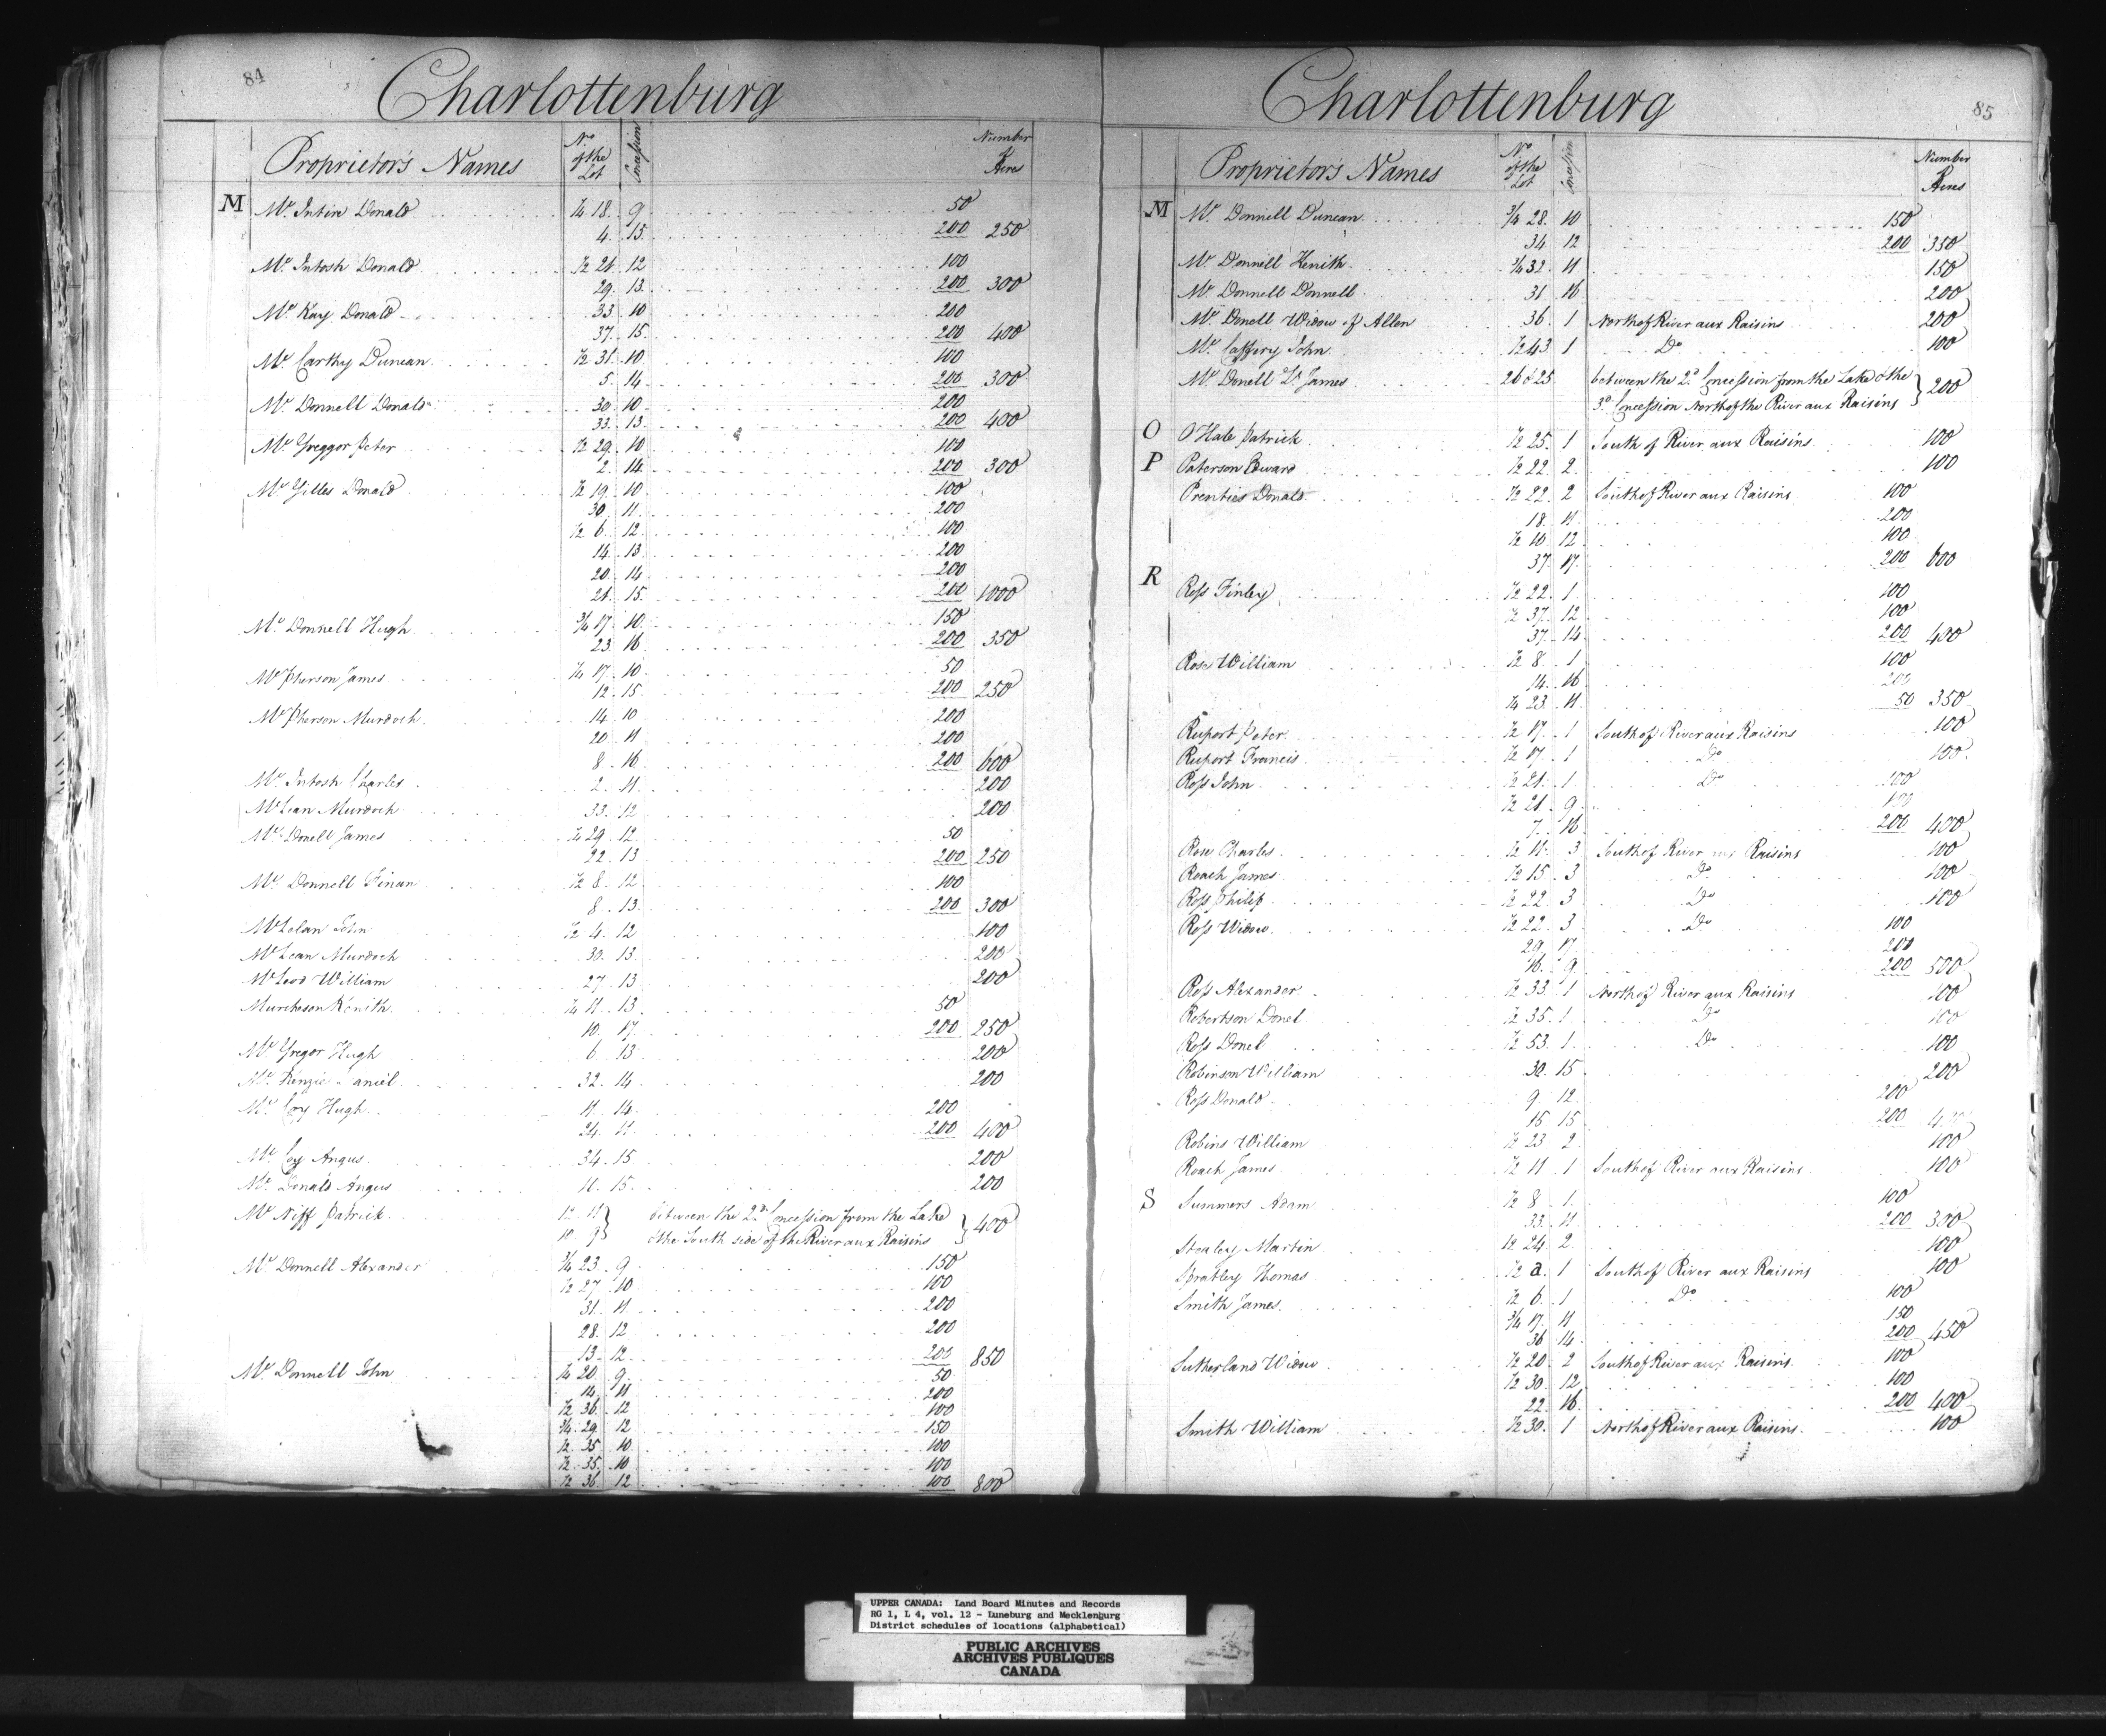 84
Charlottenburg
Proprietor's Names No. of the Lot Concession Number Acres
M
Mc. Intire Donald ¼ 18. 9 50
4. 15. 200 250
Mc. Intosh Donald ½ 21. 12 100
29. 13. 200 300
Mc. Kay Donald 33. 10 200
37. 15. 200 400
Mc. Carthy Duncan ½ 31. 10 100
5. 14. 200 300
Mc. Donnell Donald 30. 10 200
33. 13. 200 400
Mc. Greggor Peter ½ 29. 10 100
2. 14. 200 300
Mc. Gilles Donald ½ 19. 10 100
30. 11. 200
½ 6. 12. 100
14. 13. 200
20. 14. 200
21. 15. 200 1000
Mc. Donnell Hugh ¾ 17. 10. 150
23. 16 200 350
Mc Pherson James ¼ 17. 10. 50
12. 15. 200 250
Mc Pherson Murdoch 14. 10 200
20. 11 200
8. 16 200 600
Mc. Intosh Charles 2. 11. 200
Mc Lean Murdoch 33. 12 200
Mc. Donell James ¼ 29. 12. 50
22. 13 200 250
Mc. Donnell Finan ½ 8. 12. 100
8. 13. 200 300
Mc Lelan John ½ 4. 12 100
Mc Lean Murdoch 30. 13. 200
Mc Leod William 27. 13 200
Murcheson Kenith ¼ 11. 13. 50
10. 17. 200 250
Mc. Gregor Hugh 6. 13 200
Mc. Kenzie Daniel 32. 14 200
Mc. Coy Hugh 11. 14. 200
24. 11. 200 400
Mc. Coy Angus 34. 15 200
Mc. Donald Angus 11. 15. 200
Mc Niff Patrick 12. 11 } between the 2d. Concession from the Lake } 400
10. 9 } & the South side of the River aux Raisins
Mc. Donnell Alexander ¾ 23. 9 150
½ 27. 10 100
31. 11. 200
28. 12 200
13. 12. 200 850
Mc. Donnell John ¼ 20. 9. 50
14. 11 200
½ 36. 12 100
¾. 29. 12 150
½. 35. 10. 100
½. 35. 10 100
½ 36. 12 100 800
85
Charlottenburg
Proprietor's Names No. of the Lot Concession Number Acres
M
Mc. Donnell Duncan ¾ 28. 10 150
34 12 200 350
Mc. Donnell Kenith ¾ 32. 11. 150
Mc. Donnell Donnell 31 16 200
Mc. Donell Widow of Allen 36. 1 North of River aux Raisins 200
Mc. Caffery John ½ 43. 1 Do. 100
Mc. Donell Lt. James 26 & 25 between the 2d. Concession from the Lake & the } 200
3d. Concession North of the River aux Raisins
O
O Hale Patrick ½ 25. 1 South of River aux Raisins 100
P
Paterson Edward ½ 22. 2 100
Prenties Donald ½ 22. 2 South of River aux Raisins 100
18. 11. 200
½ 10. 12. 100
37. 17. 200 600
R
Ross Finley ½ 22. 1. 100
½ 37. 12 100
37. 14. 200 400
Rose William ½ 8. 1 100
14. 16 200
¼ 23. 11. 50 350
Ruport Peter ½ 17. 1 South of River aux Raisins 100
Ruport Francis ½ 17. 1 Do 100.
Ross John ½ 21. 1 Do 100
½ 21. 9 100
7. 16. 200 400
Rose Charles ½ 11. 3 South of River aux Raisins 100
Roach James ½ 15. 3 Do 100
Ross Philip ½ 22. 3 Do 100
Ross Widow ½ 22. 3. Do 100
29. 17. 200
16. 9 200 500
Ross Alexander ½ 33. 1 North of River aux Raisins 100
Robertson Donel ½ 35. 1 Do 100
Ross Donel ½ 53. 1. Do 100
Robinson William 30. 15. 200
Ross Donald 9 12. 200
15 15 200 400
Robins William ½ 23 2 100
Roach James ½ 11. 1 South of River aux Raisins 100
S
Summers Adam ½ 8. 1. 100
33. 11. 200 300
Stealey Martin ½ 24. 2. 100
Spratley Thomas ½ a. 1 South of River aux Raisins 100
Smith James ½ 6. 1 Do 100
¾ 17. 11 150
36 14. 200 450
Sutherland Widow ½ 20. 2 South of River aux Raisins 100
½ 30. 12. 100
22. 16. 200 400
Smith William ½ 30. 1 North of River aux Raisins. 100
UPPER CANADA: Land Board Minutes and Records
RG 1, L 4, vol. 12 - Luneburg and Mecklenburg
District schedules of locations (alphabetical)
PUBLIC ARCHIVES
ARCHIVES PUBLIQUES
CANADA